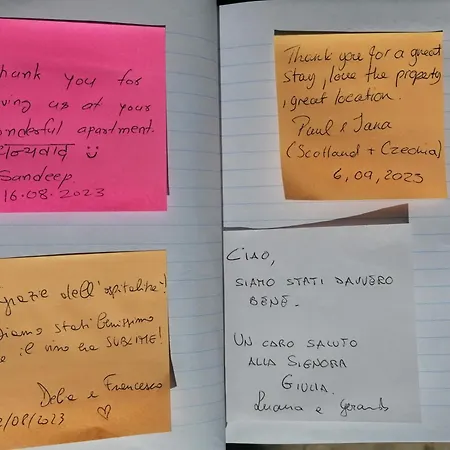 Thank you for
ving us at your
onderful apartment.
धन्यवाद ☺
Sandeep
16.08.2023
Grazie dell'ospitalità!
iamo stati benissimo
e il vino era SUBLIME!
Debe e Francesco
/08/2023 ♡
Thank you for a great
stay, love the property
, great location.
Paul & Jana
(Scotland + Czechia)
6,09,2023
CIAO,
SIAMO STATI DAVVERO
BENE.
UN CARO SALUTO
ALLA SIGNORA
GIULIA.
Luana e